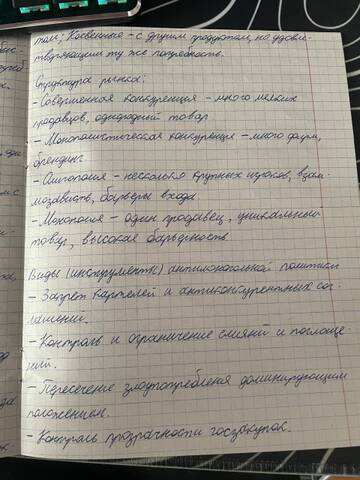 том; Косвенные - с другим продуктом, но удовле-
творяющим ту же потребность.
Структура рынка:
- Совершенная конкуренция - много мелких
продавцов, однородный товар
- Монополистическая конкуренция - много фирм,
брендинг
- Олигополия - несколько крупных игроков, взаи-
мозависть, барьеры входа.
- Монополия - один продавец, уникальный
товар, высокая барьерность.
Виды (инструменты) антимонопольной политики
- Запрет картелей и антиконкурентных сог-
лашений.
- Контроль и ограничение слияний и поглоще-
ний.
- Пересечение злоупотребления доминирующим
положением.
- Контроль прозрачности госзакупок.